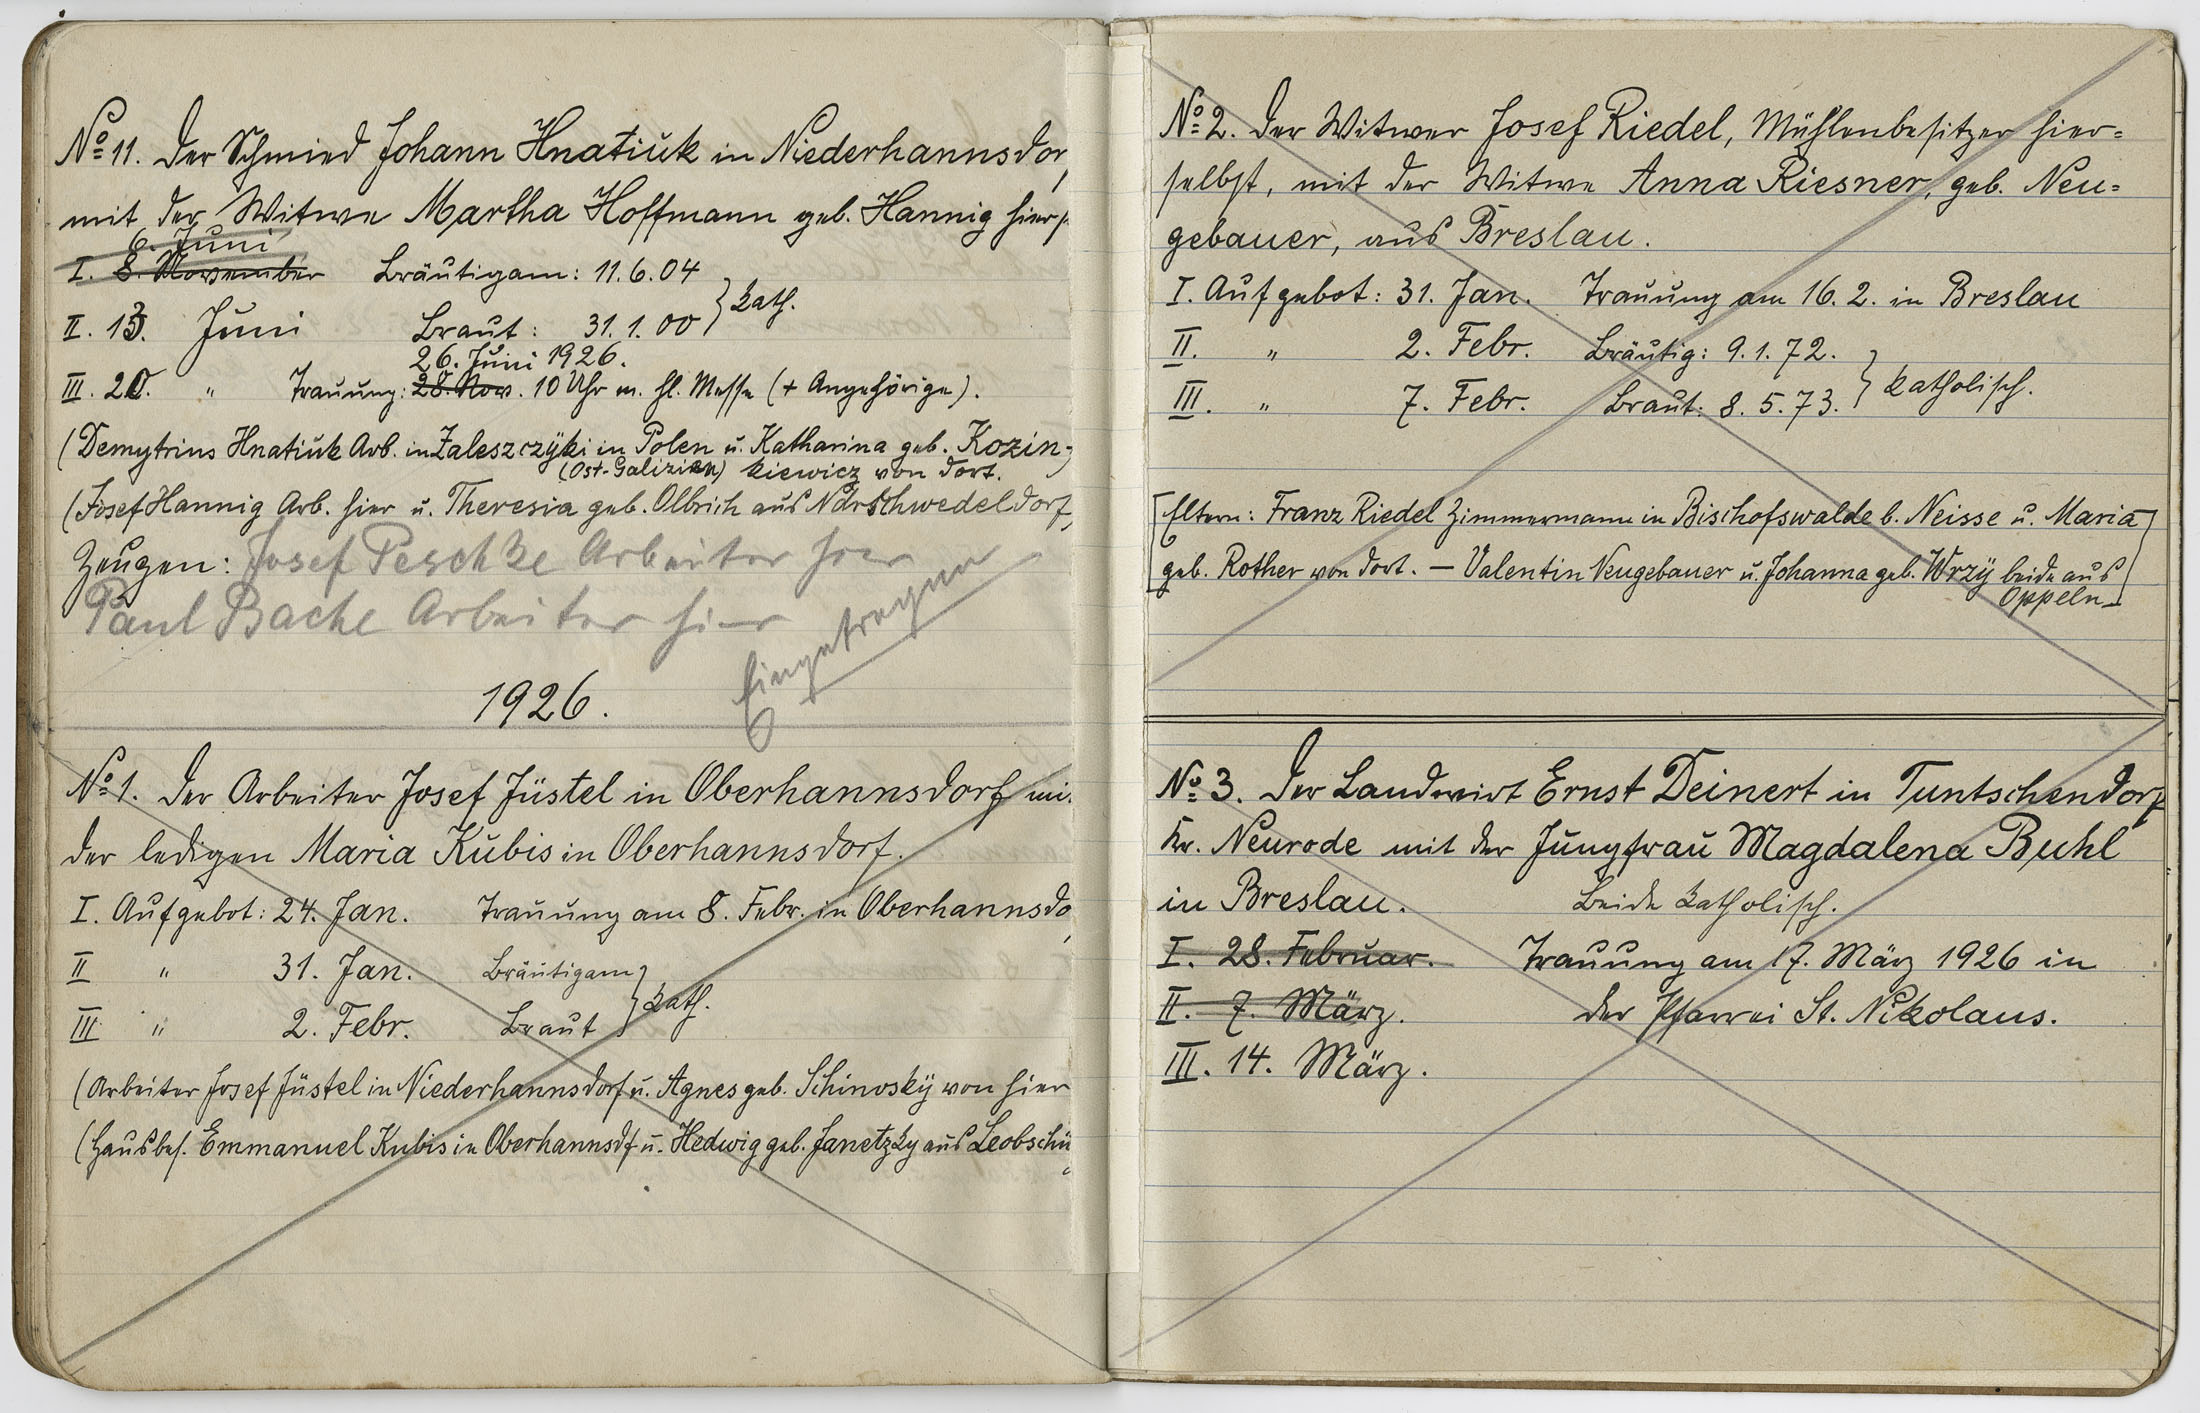 No 11. Der Schmied Johann Hnatiuk in Niederhannsdor
mit der Witwe Martha Hoffmann geb. Hannig hiers
6. Juni
I. 8. November Bräutigam: 11.6.04
II. 13. Juni Braut: 31.1.00 } kath.
26. Juni 1926.
III. 20. " Trauung: 28. Nov. 10 Uhr m. hl. Messe (+ Angehörige).
(Demytrius Hnatiuk Arb. in Zaleszczyki in Polen u. Katharina geb. Kozin-
(Ost-Galizien) kiewicz von dort.
(Josef Hannig Arb. hier u. Theresia geb. Olbrich aus Ndrschwedeldorf
Zeugen: Josef Peschke Arbeiter hier
Paul Bache Arbeiter hier
Eingetragen
1926.
No 1. Der Arbeiter Josef Jüstel in Oberhannsdorf mi
der ledigen Maria Kubis in Oberhannsdorf.
I. Aufgebot: 24. Jan. Trauung am 8. Febr. in Oberhannsdo
II " 31. Jan. Bräutigam
III " 2. Febr. Braut } kath.
(Arbeiter Josef Jüstel in Niederhannsdorf u. Agnes geb. Schinosky von hier
(Hausbes. Emmanuel Kubis in Oberhannsdf u. Hedwig geb. Janetzky aus Leobschü
No 2. Der Witwer Josef Riedel, Mühlenbesitzer hier=
selbst, mit der Witwe Anna Riesner, geb. Neu=
gebauer, aus Breslau.
I. Aufgebot: 31. Jan. Trauung am 16. 2. in Breslau
II. " 2. Febr. Bräutig: 9. 1. 72.
III. " 7. Febr. Braut: 8. 5. 73. } katholisch.
[Eltern: Franz Riedel Zimmermann in Bischofswalde b. Neisse u. Maria
geb. Rother von dort. — Valentin Neugebauer u. Johanna geb. Wrzy beide aus
Oppeln]
No 3. Der Landwirt Ernst Deinert in Tuntschendorf
Kr. Neurode mit der Jungfrau Magdalena Buhl
in Breslau. Beide katholisch.
I. 28. Februar. Trauung am 17. März 1926 in
II. 7. März. der Pfarrei St. Nikolaus.
III. 14. März.